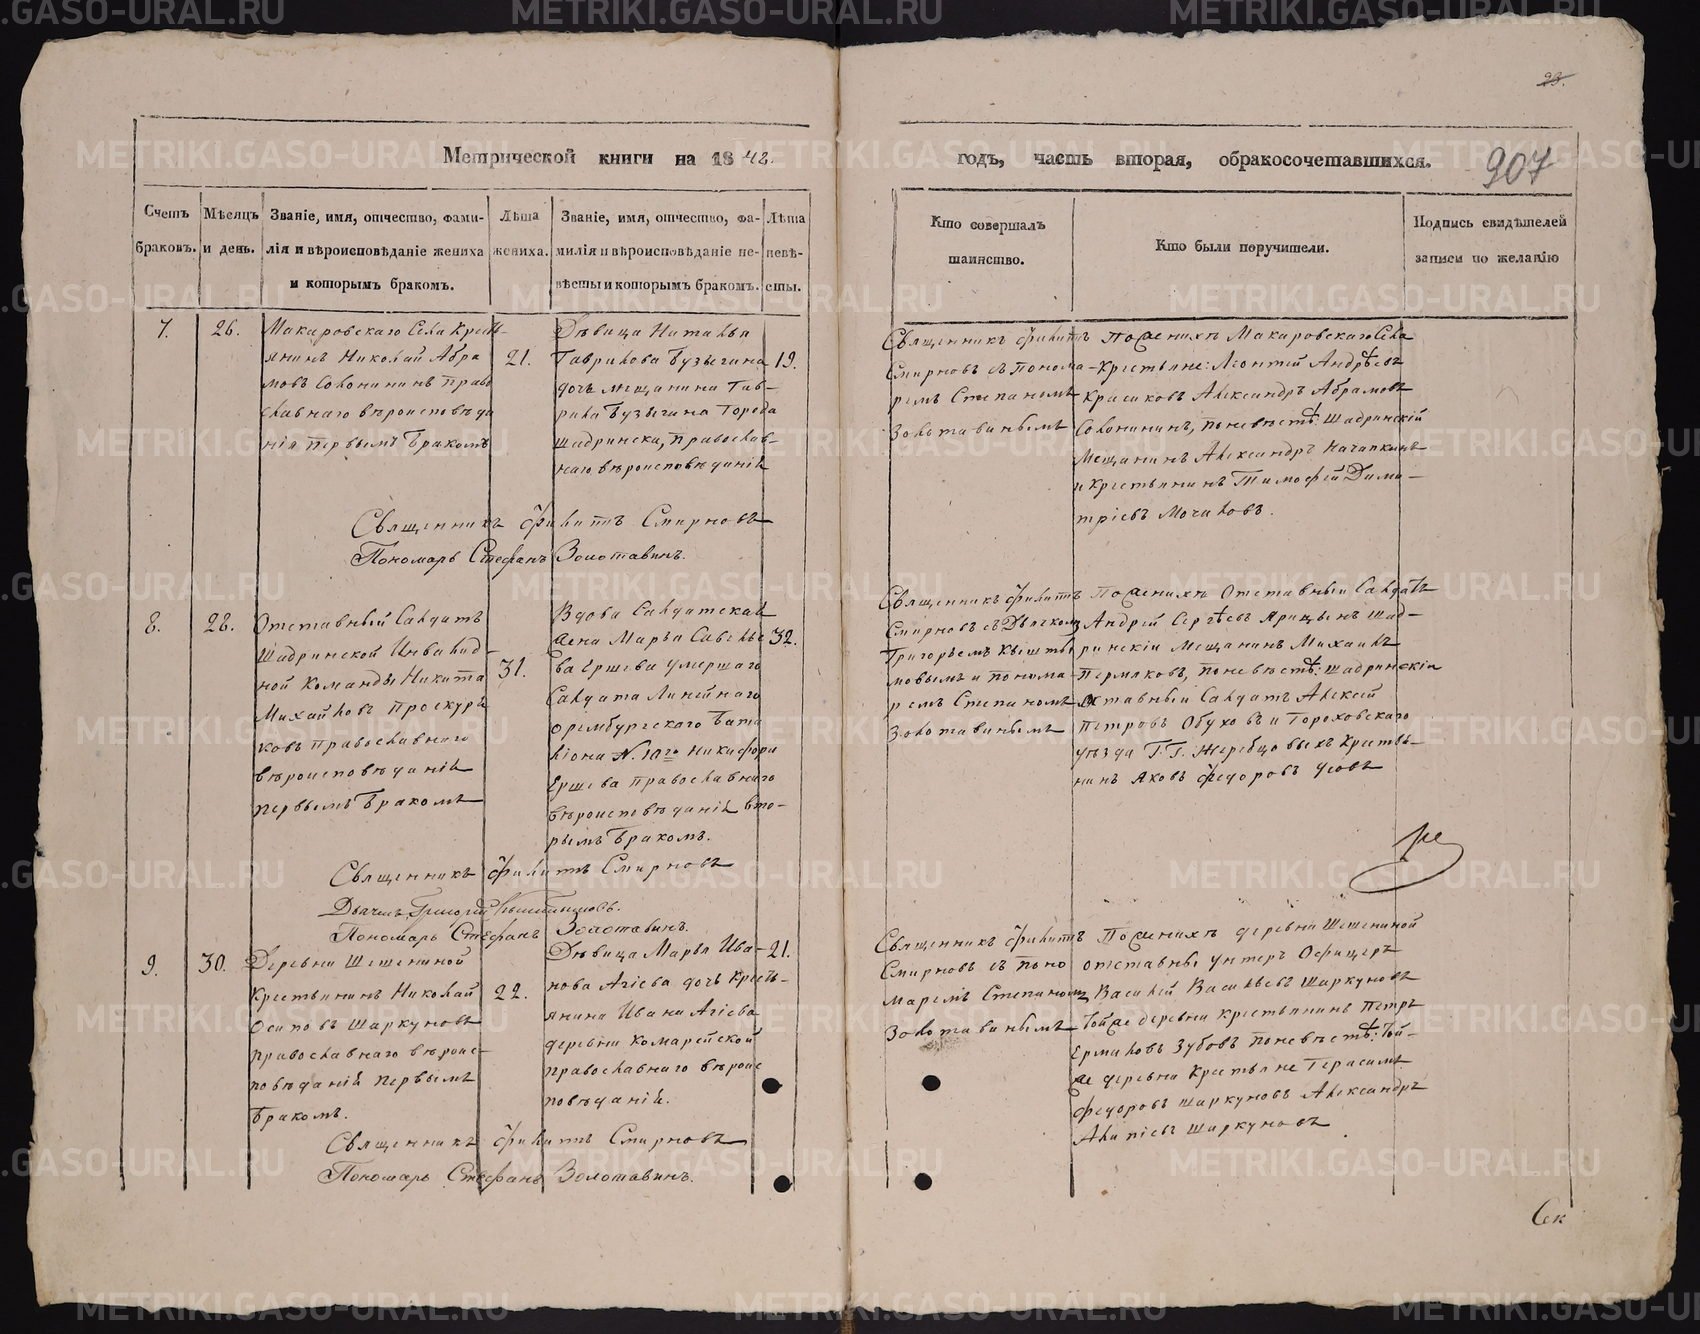 23.
Метрической книги на 1842.
годъ, часть вторая, обракосочетавшихся.
907
Счетъ
браковъ.
Мѣсяцъ
и день.
Званіе, имя, отчество, фами-
лія и вѣроисповѣданіе жениха
и которымъ бракомъ.
Лѣта
жениха.
Званіе, имя, отчество, фа-
милія и вѣроисповѣданіе не-
вѣсты и которымъ бракомъ.
Лѣта
невѣ-
сты.
Кто совершалъ
таинство.
Кто были поручители.
Подпись свидѣтелей
записи по желанію
7.
26.
Макаровскаго Села Крест-
янинъ Николай Абра
мовъ Солонининъ право
славнаго вѣроисповѣда
нія первымъ бракомъ
21.
Дѣвица Наталья
Гаврилова Бузыгина
дочь мещанина Гав-
рила Бузыгина города
Шадринска, православ-
наго вѣроисповѣданія
19.
Священникъ Филитъ
Смирновъ съ Понома-
ремъ Степаномъ
Золотавинымъ
По женихѣ Макаровскаго Села
Крестьяне: Леонтей Андрѣевъ
Красиковъ Александръ Абрамовъ
Солонининъ, по невѣстѣ: Шадринскій
Мещанинъ Александръ
и крестьянинъ Тимофей Дими-
тріевъ Мочаловъ.
Священникъ Филитъ Смирновъ
Пономарь Стефанъ Золотавинъ.
8.
28.
Отставный Салдатъ
Шадринской Инвалид-
ной команды Никита
Михайловъ Проскуря
ковъ православнаго
вѣроисповѣданія
первымъ бракомъ
31.
Вдова Салдатская
жена Марья Савелье
ва Ершева умершаго
Салдата Линейнаго
оренбургскаго бата
ліона N. 1аго Никифора
Ершева православнаго
вѣроисповѣданія вто-
рымъ бракомъ.
32.
Священникъ Филитъ
Смирновъ съ Дьячкомъ
Григорьемъ Кышты
мовымъ и понома-
ремъ Степаномъ
Золотавинымъ
По женихѣ Отставный Салдатъ
Андрей Сергѣевъ Ярицынъ Шад-
ринскіи Мещанинъ Михаилъ
Пермяковъ, по невѣстѣ: Шадринскіи
отставный Салдатъ Алексей
Петровъ Обуховъ и Гороховскаго
уѣзда Г. Г. Жеребцовыхъ Крестья-
нинъ Яковъ Федоровъ Усовъ
Священникъ Филитъ Смирновъ
Дьячекъ Григорій
Пономарь Стефанъ Золотавинъ.
9.
30.
Деревни Шешениной
Крестьянинъ Николай
Осиповъ Шаркуновъ
православнаго вѣроис-
повѣданія первымъ
бракомъ.
22.
Дѣвица Марья Ива-
нова Агіева дочь Крест-
янина Ивана Агіева
деревни комарейской
православнаго вѣроис
повѣданій.
21.
Священникъ Филитъ
Смирновъ съ поно
маремъ Степаномъ
Золотавинымъ
По женихѣ деревни Шешениной
отставны унтеръ Офицеръ
Василей Васильевъ Шаркуновъ
той же деревни крестьянинъ Петръ
Ермиловъ Зубовъ по невѣстѣ: той-
же деревни Крестьяне Герасимъ
Федоровъ Шаркуновъ Александръ
Шаркуновъ
Священникъ Филитъ Смирновъ
Пономарь Стефанъ Золотавинъ.